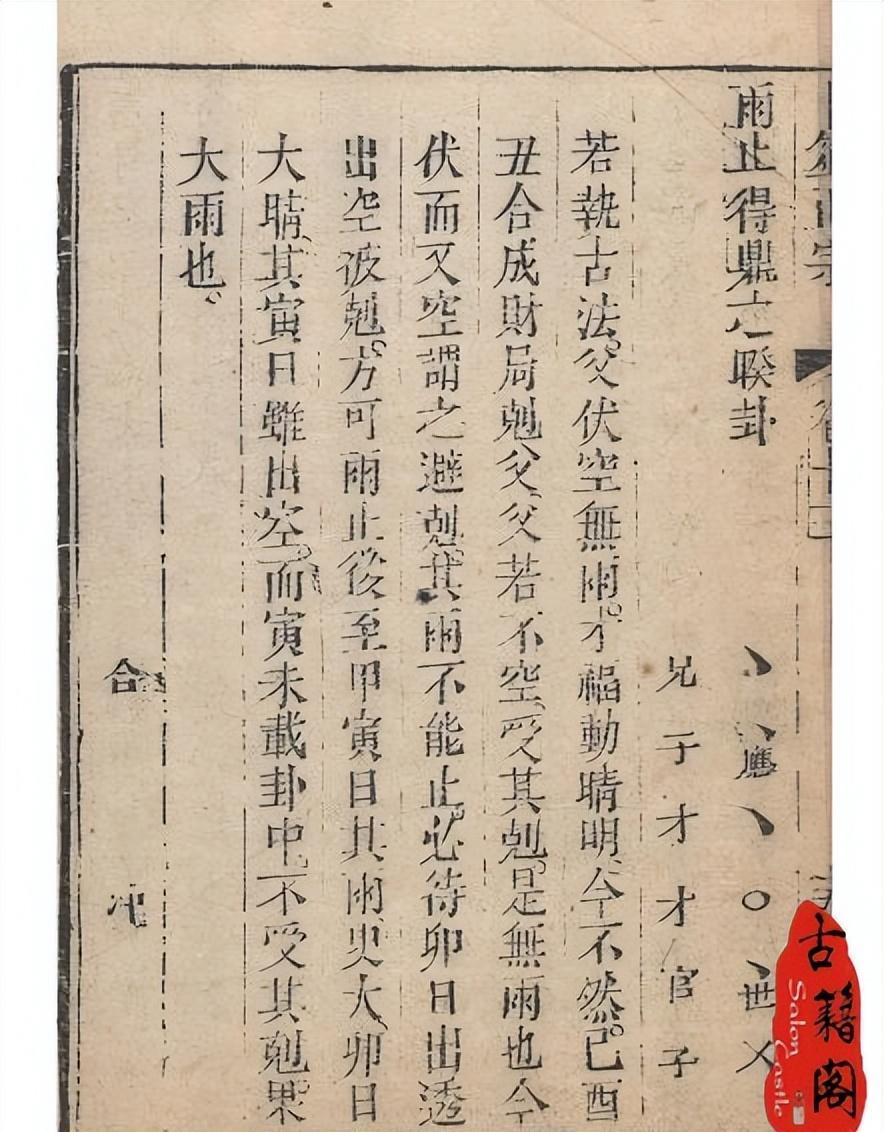 卜筮正宗
卷十三
雨止得鼎之睽卦
丶 丶應 丶 〇 丶世 乂
兄 子 才 才 官 子
若執古法父伏空無雨才福動晴明今不然己酉
丑合成財局剋父父若不空受其剋是無雨也今
伏而又空謂之避剋其雨不能止必待卯日出透
出空被剋方可雨止後至甲寅日其雨更大卯日
大晴其寅日雖出空而寅未載卦中不受其剋果
大雨也
合
冲
古籍阁
Salon Castle